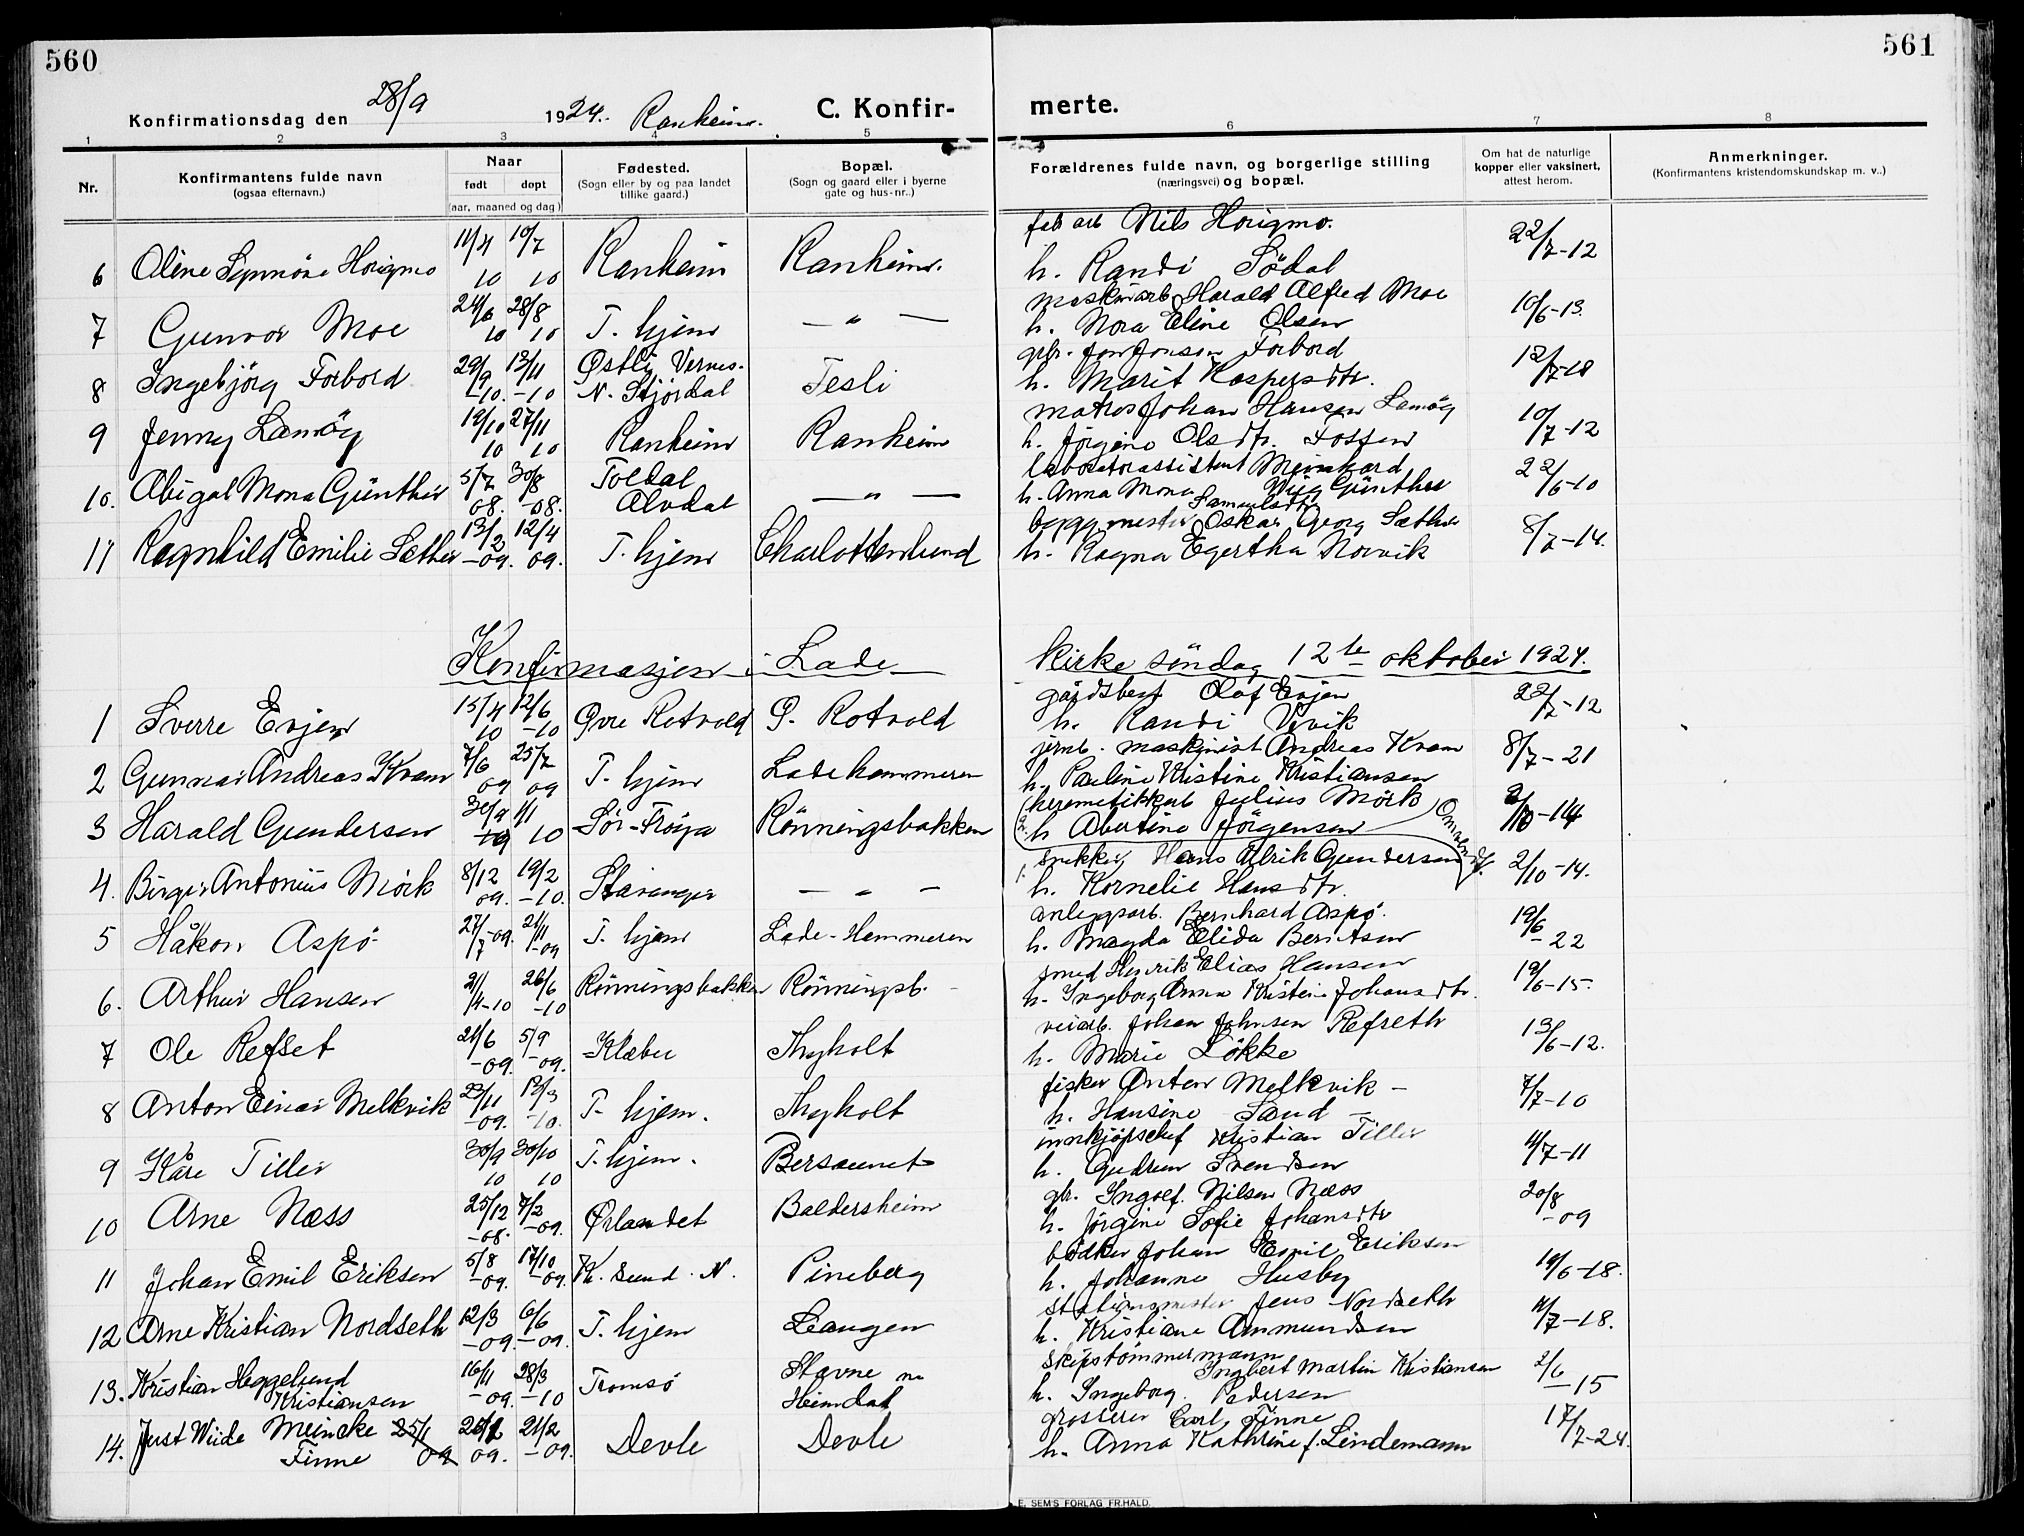 560
561
Konfirmationsdag den 28/9 1924. Ranheim.
C. Konfirmerte.
1 2 3 4 5 6 7 8
Nr.
Konfirmantens fulde navn
(ogsaa efternavn.)
Naar
født dopt
(aar, maaned og dag)
Fødested.
(Sogn eller by og paa landet
tillike gaard.)
Bopæl.
(Sogn og gaard eller i byerne
gate og hus-nr..)
Forældrenes fulde navn, og borgerlige stilling
(næringsvei) og bopæl.
Om hat de naturlige
kopper eller vaksinert,
attest herom.
Anmerkninger.
(Konfirmantens kristendomskundskap m. v..)
6 Oline Synnöve Horigmo 11/4 10 10/7 10 Ranheim Ranheim. fab arb Nils Horigmo. 22/7-12
h. Randi Södal
7 Gunvor Moe 24/6 10 28/8 10 T. hjem — " — maskinarb Harald Alfred Moe 10/6-13.
h. Nora Eline Olsen
8 Ingebjörg Forbord 29/9 -10. 13/11 -10 Østli, Vernes. N. Stjørdal Tesli gbr. Jon Jonsen Forbord 12/7-18
h. Marit Kaspersdtr.
9 Jenny Lamöy 19/10 10 27/11 10 Ranheim Ranheim matros Johan Hansen Lamöy 10/7-12
h. Jörgine Olsdtr. Fossen
10. Abigal Mona Günther 5/7 08. 30/8 -08. Foldal Alvdal — " — laboratorassistent Meinhard Wiig Günther 22/6-10
h. Anna Mona Samuelsdtr
11 Ragnhild Emilie Sæther 13/2 -09. 12/4 09. T. hjem Charlottenlund byggmester Oskar Georg Sæther 8/7-14.
h. Ragna Egertha Norvik
Konfirmasjon i Lade kirke söndag 12te oktober 1924.
1 Sverre Evjen 15/4 10 12/6 -10 Øvre Rotvold Ø. Rotvold gårdsbest Olaf Evjen 22/7-12
h. Randi Vevik
2 Gunnar Andreas Kvam 7/6 09 25/7 09 T. hjem Ladehammeren jernb. maskinist Andreas Kvam 8/7-21
h. Pauline Kristine Kristiansen
3 Harald Gundersen 30/9 09 1/1 10 Sør-Fröya Rönningsbakken hermetikkarb Julius Mörk /10-14
h Abertine Jörgensen
4. Birger Antonius Mörk 8/12 09. 19/2 -10. Stavanger — " — snekker Hans Ulrik Gundersen 2/10-14.
h. Kornelie Hansdtr.
5 Håkon Aspö 27/7 -09. 21/11 -09 T. hjem Lade-Hammeren anleggsarb. Bernhard Aspö. 19/6-22
h. Magda Elida Berntsen
6. Arthur Hansen 21/4-10 26/6 -10 Rönningsbakken Rönningsb. smed Henrik Elias Hansen 19/6-15.
h. Ingeborg Anna Kristine Johansdtr.
7 Ole Refset 21/6 -09. 5/9 -09. Klæbu Thyholt veiarb. Johan Johnsen Refseth 13/6-12.
h. Marie Lökke
8 Anton Einar Melkvik 23/11 -09. 13/3 -10. T- hjem. Thyholt fisker Anton Melkvik - 7/7-10
h. Hansine Sand -
9 Kåre Tiller 30/9 10 30/10 10 T. hjem. Bersaunet innkjöpschef Kristian Tiller 4/7-11
h. Gudrun Svendsen
10 Arne Næss 25/12 -08. 7/2 -09. Ørlandet Baldersheim gbr. Ingolf. Nilsen Næss 20/8-09
h. Jörgine Sofie Johansdtr
11 Johan Emil Eriksen 5/8 -09. 17/10 -09. Kr. sund. N. Pineberg bödker Johan Emil Eriksen 19/6-18.
h. Johanne Husby
12 Arne Kristian Nordseth 12/3 -09. 6/6 -09. T. hjem Leangen stationsmester Jens Nordseth 4/7-18.
h. Kristiane Ammundsen
13. Kristian Heggelund Kristiansen 16/11 -09. 28/3 -10 Tromsö Stavne Heimdal skipstömmermann Ingbert Martin Kristiansen 2/6-15
h. Ingeborg. Pedersen
14. Just Wiide Meincke Finne 25/1 09 09. 21/2 -09. Devle Devle grosserer Carl Finne 17/7-24.
h. Anna Kathrine f. Lindemann
E. SEM'S FORLAG FR.HALD.